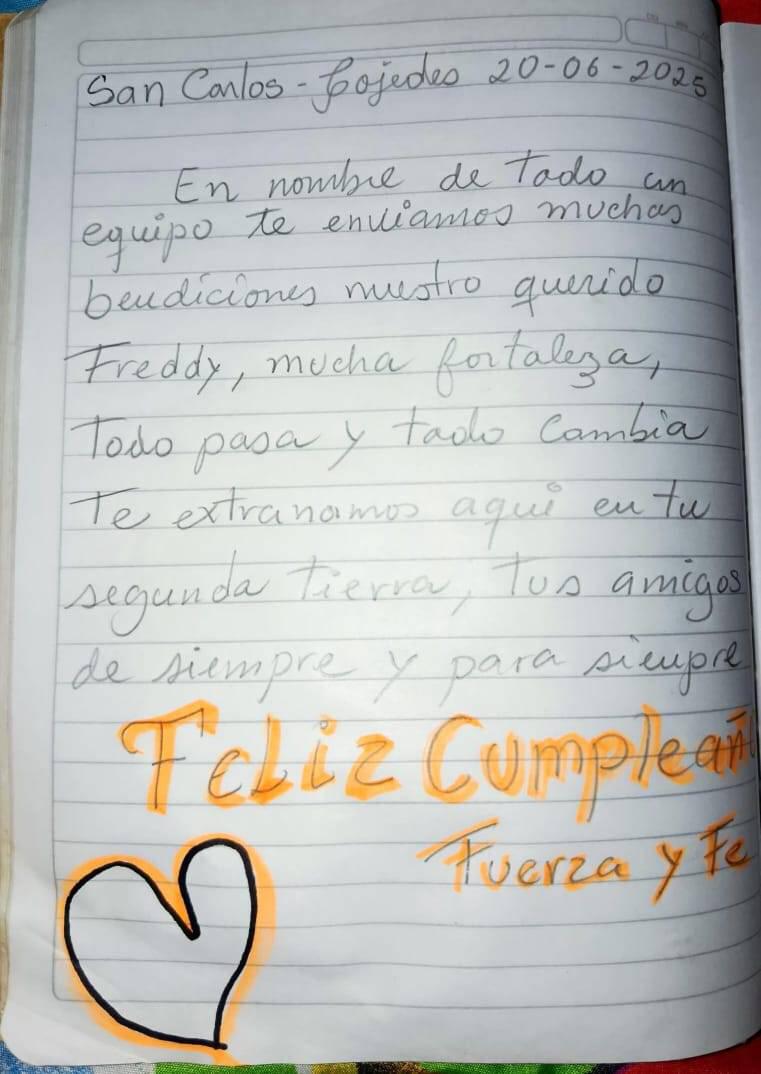 San Carlos - Cojedes 20-06-2025
En nombre de Todo un
equipo te enviamos muchas
bendiciones nuestro querido
Freddy, mucha fortaleza,
Todo pasa y todo cambia
Te extranamos aqui en tu
segunda Tierra, Tus amigos
de siempre y para siempre
Feliz Cumpleañ
Fuerza y Fe